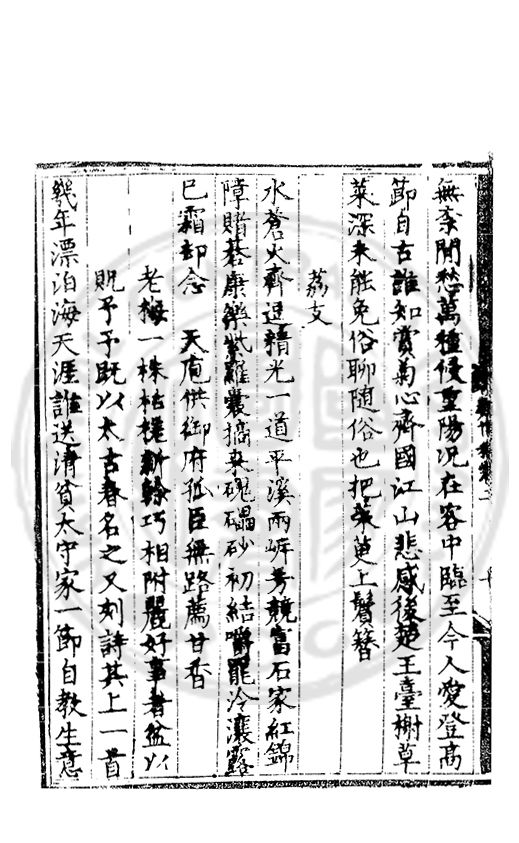 無柰閒愁萬種侵重陽况在客中臨至今人愛登高
節自古誰如賞菊心齊國江山悲感後楚王臺榭草
萊深未能免俗聊随俗也把茱萸上鬢簪
荔支
水蒼火齊逞精光一道平溪兩岍芳競富石家紅錦
障賭碁康樂紫羅囊摘來磈礧砂初結嚼罷泠瀼露
已霜却念 天庖供御府孤臣無路薦甘香
老梅一株枯槎新榦巧相附麗好事者盆以
貺予予既以太古春名之又刻詩其上一首
幾年漂泊海天涯誰送清貧太守家一節自教生意